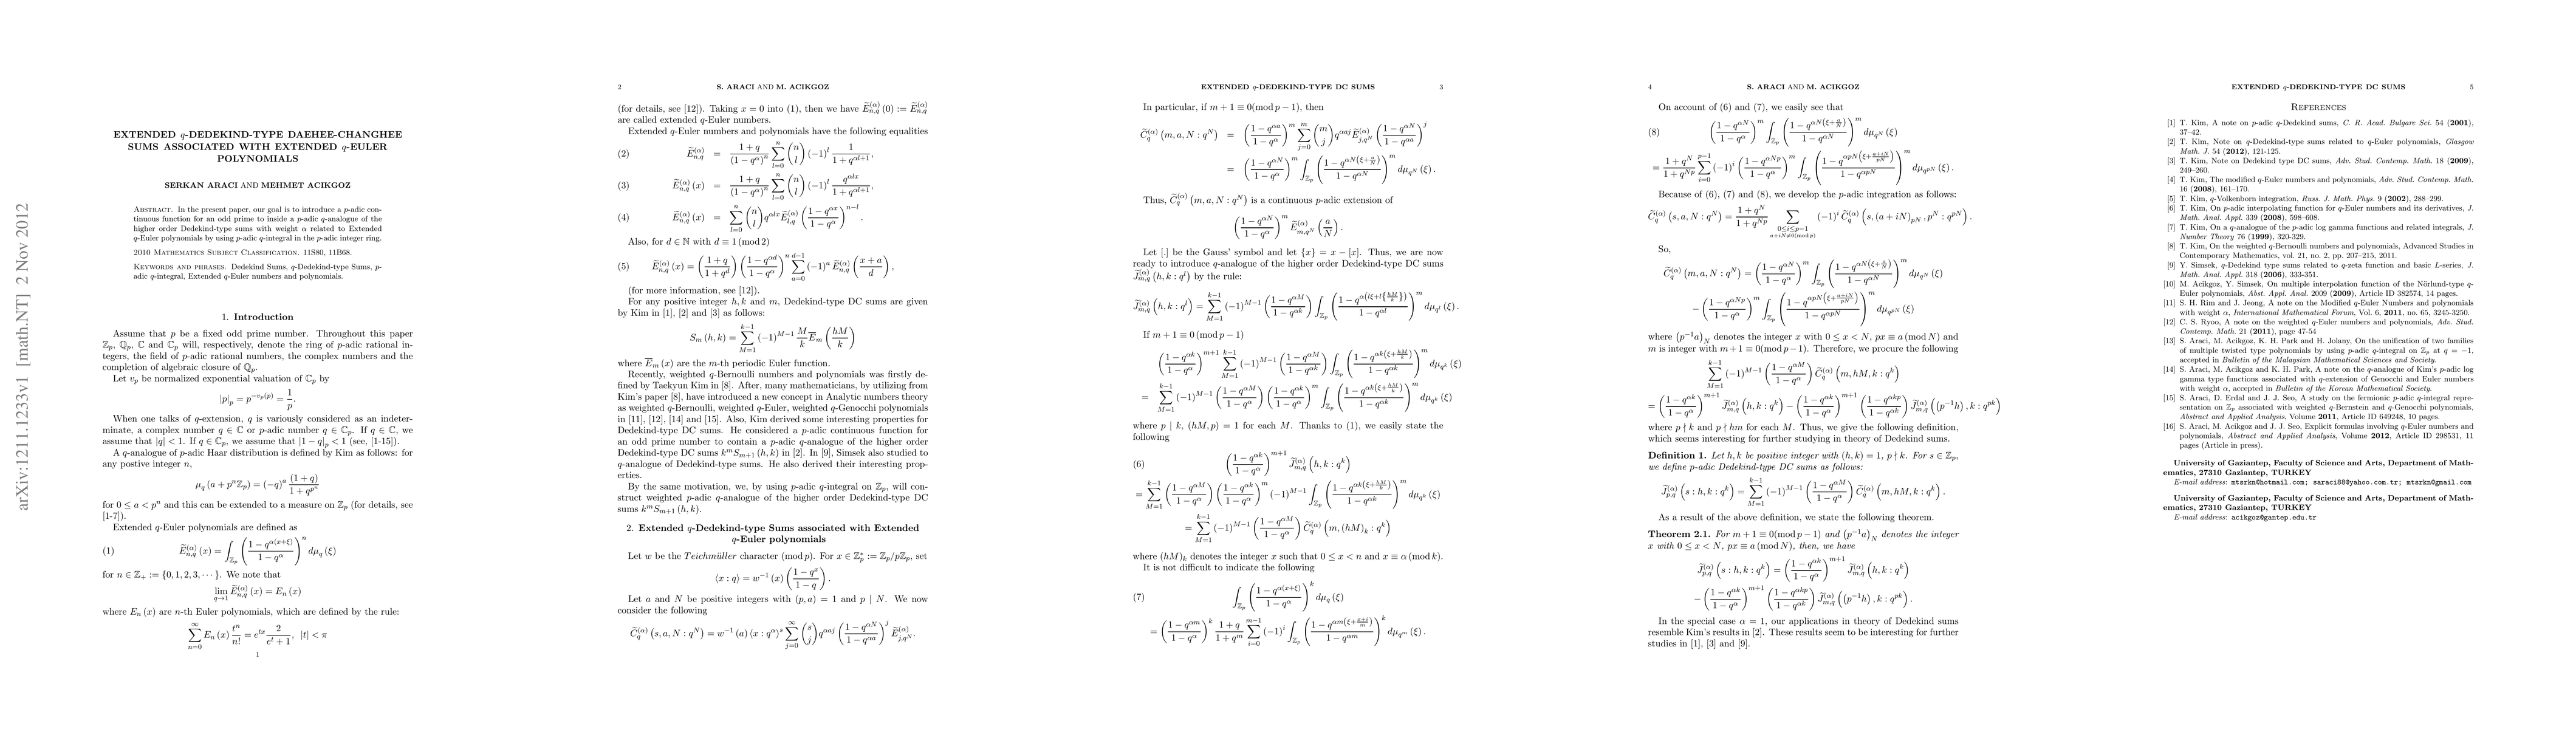 arXiv:1211.1233v1 [math.NT] 2 Nov 2012
EXTENDED q-DEDEKIND-TYPE DAEHEE-CHANGHEE
SUMS ASSOCIATED WITH EXTENDED q-EULER
POLYNOMIALS
SERKAN ARACI AND MEHMET ACIKGOZ
Abstract. In the present paper, our goal is to introduce a p-adic con-
tinuous function for an odd prime to inside a p-adic q-analogue of the
higher order Dedekind-type sums with weight α related to Extended
q-Euler polynomials by using p-adic q-integral in the p-adic integer ring.
2010 Mathematics Subject Classification. 11S80, 11B68.
Keywords and phrases. Dedekind Sums, q-Dedekind-type Sums, p-
adic q-integral, Extended q-Euler numbers and polynomials.
1. Introduction
Assume that p be a fixed odd prime number. Throughout this paper
ℤ_p, ℚ_p, ℂ and ℂ_p will, respectively, denote the ring of p-adic rational in-
tegers, the field of p-adic rational numbers, the complex numbers and the
completion of algebraic closure of ℚ_p.
Let v_p be normalized exponential valuation of ℂ_p by
|p|_p = p^{-v_p(p)} = 1/p.
When one talks of q-extension, q is variously considered as an indeter-
minate, a complex number q ∈ ℂ or p-adic number q ∈ ℂ_p. If q ∈ ℂ, we
assume that |q| < 1. If q ∈ ℂ_p, we assume that |1 − q|_p < 1 (see, [1-15]).
A q-analogue of p-adic Haar distribution is defined by Kim as follows: for
any postive integer n,
μ_q (a + p^n ℤ_p) = (−q)^a (1 + q)/(1 + q^{p^n})
for 0 ≤ a < p^n and this can be extended to a measure on ℤ_p (for details, see
[1-7]).
Extended q-Euler polynomials are defined as
(1) Ẽ_{n,q}^{(α)} (x) = ∫_{ℤ_p} ((1 − q^{α(x+ξ)})/(1 − q^α))^n dμ_q (ξ)
for n ∈ ℤ_+ := {0, 1, 2, 3, ···}. We note that
lim_{q→1} Ẽ_{n,q}^{(α)} (x) = E_n (x)
where E_n (x) are n-th Euler polynomials, which are defined by the rule:
∑_{n=0}^{∞} E_n (x) t^n/n! = e^{tx} 2/(e^t + 1), |t| < π
1
2 S. ARACI AND M. ACIKGOZ
(for details, see [12]). Taking x = 0 into (1), then we have Ẽ_{n,q}^{(α)} (0) := Ẽ_{n,q}^{(α)}
are called extended q-Euler numbers.
Extended q-Euler numbers and polynomials have the following equalities
(2) Ẽ_{n,q}^{(α)} = (1 + q)/(1 − q^α)^n ∑_{l=0}^{n} (n l) (−1)^l 1/(1 + q^{αl+1}),
(3) Ẽ_{n,q}^{(α)} (x) = (1 + q)/(1 − q^α)^n ∑_{l=0}^{n} (n l) (−1)^l q^{αlx}/(1 + q^{αl+1}),
(4) Ẽ_{n,q}^{(α)} (x) = ∑_{l=0}^{n} (n l) q^{αlx} Ẽ_{l,q}^{(α)} ((1 − q^{αx})/(1 − q^α))^{n−l}.
Also, for d ∈ ℕ with d ≡ 1 (mod 2)
(5) Ẽ_{n,q}^{(α)} (x) = ((1 + q)/(1 + q^d)) ((1 − q^{αd})/(1 − q^α))^n ∑_{a=0}^{d−1} (−1)^a Ẽ_{n,q}^{(α)} ((x + a)/d),
(for more information, see [12]).
For any positive integer h, k and m, Dedekind-type DC sums are given
by Kim in [1], [2] and [3] as follows:
S_m (h, k) = ∑_{M=1}^{k−1} (−1)^{M−1} (M/k) E̅_m (hM/k)
where E̅_m (x) are the m-th periodic Euler function.
Recently, weighted q-Bernoulli numbers and polynomials was firstly de-
fined by Taekyun Kim in [8]. After, many mathematicians, by utilizing from
Kim's paper [8], have introduced a new concept in Analytic numbers theory
as weighted q-Bernoulli, weighted q-Euler, weighted q-Genocchi polynomials
in [11], [12], [14] and [15]. Also, Kim derived some interesting properties for
Dedekind-type DC sums. He considered a p-adic continuous function for
an odd prime number to contain a p-adic q-analogue of the higher order
Dedekind-type DC sums k^m S_{m+1} (h, k) in [2]. In [9], Simsek also studied to
q-analogue of Dedekind-type sums. He also derived their interesting prop-
erties.
By the same motivation, we, by using p-adic q-integral on ℤ_p, will con-
struct weighted p-adic q-analogue of the higher order Dedekind-type DC
sums k^m S_{m+1} (h, k).
2. Extended q-Dedekind-type Sums associated with Extended
q-Euler polynomials
Let w be the Teichmüller character (mod p). For x ∈ ℤ_p^* := ℤ_p/pℤ_p, set
⟨x : q⟩ = w^{−1} (x) ((1 − q^x)/(1 − q)).
Let a and N be positive integers with (p, a) = 1 and p | N. We now
consider the following
C̃_q^{(α)} (s, a, N : q^N) = w^{−1} (a) ⟨x : q^α⟩^s ∑_{j=0}^{∞} (s j) q^{αaj} ((1 − q^{αN})/(1 − q^{αa}))^j Ẽ_{j,q^N}^{(α)}.
EXTENDED q-DEDEKIND-TYPE DC SUMS 3
In particular, if m + 1 ≡ 0(mod p − 1), then
C̃_q^{(α)} (m, a, N : q^N) = ((1 − q^{αa})/(1 − q^α))^m ∑_{j=0}^{m} (m j) q^{αaj} Ẽ_{j,q^N}^{(α)} ((1 − q^{αN})/(1 − q^{αa}))^j
= ((1 − q^{αN})/(1 − q^α))^m ∫_{ℤ_p} ((1 − q^{αN(ξ+a/N)})/(1 − q^{αN}))^m dμ_{q^N} (ξ).
Thus, C̃_q^{(α)} (m, a, N : q^N) is a continuous p-adic extension of
((1 − q^{αN})/(1 − q^α))^m Ẽ_{m,q^N}^{(α)} (a/N).
Let [.] be the Gauss' symbol and let {x} = x − [x]. Thus, we are now
ready to introduce q-analogue of the higher order Dedekind-type DC sums
J̃_{m,q}^{(α)} (h, k : q^l) by the rule:
J̃_{m,q}^{(α)} (h, k : q^l) = ∑_{M=1}^{k−1} (−1)^{M−1} ((1 − q^{αM})/(1 − q^{αk})) ∫_{ℤ_p} ((1 − q^{α(lξ+l{hM/k})})/(1 − q^{αl}))^m dμ_{q^l} (ξ).
If m + 1 ≡ 0 (mod p − 1)
((1 − q^{αk})/(1 − q^α))^{m+1} ∑_{M=1}^{k−1} (−1)^{M−1} ((1 − q^{αM})/(1 − q^{αk})) ∫_{ℤ_p} ((1 − q^{αk(ξ+hM/k)})/(1 − q^{αk}))^m dμ_{q^k} (ξ)
= ∑_{M=1}^{k−1} (−1)^{M−1} ((1 − q^{αM})/(1 − q^α)) ((1 − q^{αk})/(1 − q^α))^m ∫_{ℤ_p} ((1 − q^{αk(ξ+hM/k)})/(1 − q^{αk}))^m dμ_{q^k} (ξ)
where p | k, (hM, p) = 1 for each M. Thanks to (1), we easily state the
following
(6) ((1 − q^{αk})/(1 − q^α))^{m+1} J̃_{m,q}^{(α)} (h, k : q^k)
= ∑_{M=1}^{k−1} ((1 − q^{αM})/(1 − q^α)) ((1 − q^{αk})/(1 − q^α))^m (−1)^{M−1} ∫_{ℤ_p} ((1 − q^{αk(ξ+hM/k)})/(1 − q^{αk}))^m dμ_{q^k} (ξ)
= ∑_{M=1}^{k−1} (−1)^{M−1} ((1 − q^{αM})/(1 − q^α)) C̃_q^{(α)} (m, (hM)_k : q^k)
where (hM)_k denotes the integer x such that 0 ≤ x < n and x ≡ α (mod k).
It is not difficult to indicate the following
(7) ∫_{ℤ_p} ((1 − q^{α(x+ξ)})/(1 − q^α))^k dμ_q (ξ)
= ((1 − q^{αm})/(1 − q^α))^k (1 + q)/(1 + q^m) ∑_{i=0}^{m−1} (−1)^i ∫_{ℤ_p} ((1 − q^{αm(ξ+(x+i)/m)})/(1 − q^{αm}))^k dμ_{q^m} (ξ).
4 S. ARACI AND M. ACIKGOZ
On account of (6) and (7), we easily see that
(8) ((1 − q^{αN})/(1 − q^α))^m ∫_{ℤ_p} ((1 − q^{αN(ξ+a/N)})/(1 − q^{αN}))^m dμ_{q^N} (ξ)
= (1 + q^N)/(1 + q^{Np}) ∑_{i=0}^{p−1} (−1)^i ((1 − q^{αNp})/(1 − q^α))^m ∫_{ℤ_p} ((1 − q^{αpN(ξ+(a+iN)/pN)})/(1 − q^{αpN}))^m dμ_{q^{pN}} (ξ).
Because of (6), (7) and (8), we develop the p-adic integration as follows:
C̃_q^{(α)} (s, a, N : q^N) = (1 + q^N)/(1 + q^{Np}) ∑_{0≤i≤p−1, a+iN≠0(mod p)} (−1)^i C̃_q^{(α)} (s, (a + iN)_{pN}, p^N : q^{pN}).
So,
C̃_q^{(α)} (m, a, N : q^N) = ((1 − q^{αN})/(1 − q^α))^m ∫_{ℤ_p} ((1 − q^{αN(ξ+a/N)})/(1 − q^{αN}))^m dμ_{q^N} (ξ)
− ((1 − q^{αNp})/(1 − q^α))^m ∫_{ℤ_p} ((1 − q^{αpN(ξ+(a+iN)/pN)})/(1 − q^{αpN}))^m dμ_{q^{pN}} (ξ)
where (p^{−1}a)_N denotes the integer x with 0 ≤ x < N, px ≡ a (mod N) and
m is integer with m + 1 ≡ 0(mod p − 1). Therefore, we procure the following
∑_{M=1}^{k−1} (−1)^{M−1} ((1 − q^{αM})/(1 − q^α)) C̃_q^{(α)} (m, hM, k : q^k)
= ((1 − q^{αk})/(1 − q^α))^{m+1} J̃_{m,q}^{(α)} (h, k : q^k) − ((1 − q^{αk})/(1 − q^α))^{m+1} ((1 − q^{αkp})/(1 − q^{αk})) J̃_{m,q}^{(α)} ((p^{−1}h), k : q^{pk})
where p ∤ k and p ∤ hm for each M. Thus, we give the following definition,
which seems interesting for further studying in theory of Dedekind sums.
Definition 1. Let h, k be positive integer with (h, k) = 1, p ∤ k. For s ∈ ℤ_p,
we define p-adic Dedekind-type DC sums as follows:
J̃_{p,q}^{(α)} (s : h, k : q^k) = ∑_{M=1}^{k−1} (−1)^{M−1} ((1 − q^{αM})/(1 − q^α)) C̃_q^{(α)} (m, hM, k : q^k).
As a result of the above definition, we state the following theorem.
Theorem 2.1. For m + 1 ≡ 0(mod p − 1) and (p^{−1}a)_N denotes the integer
x with 0 ≤ x < N, px ≡ a (mod N), then, we have
J̃_{p,q}^{(α)} (s : h, k : q^k) = ((1 − q^{αk})/(1 − q^α))^{m+1} J̃_{m,q}^{(α)} (h, k : q^k)
− ((1 − q^{αk})/(1 − q^α))^{m+1} ((1 − q^{αkp})/(1 − q^{αk})) J̃_{m,q}^{(α)} ((p^{−1}h), k : q^{pk}).
In the special case α = 1, our applications in theory of Dedekind sums
resemble Kim's results in [2]. These results seem to be interesting for further
studies in [1], [3] and [9].
EXTENDED q-DEDEKIND-TYPE DC SUMS 5
References
[1] T. Kim, A note on p-adic q-Dedekind sums, C. R. Acad. Bulgare Sci. 54 (2001),
37–42.
[2] T. Kim, Note on q-Dedekind-type sums related to q-Euler polynomials, Glasgow
Math. J. 54 (2012), 121-125.
[3] T. Kim, Note on Dedekind type DC sums, Adv. Stud. Contemp. Math. 18 (2009),
249–260.
[4] T. Kim, The modified q-Euler numbers and polynomials, Adv. Stud. Contemp. Math.
16 (2008), 161–170.
[5] T. Kim, q-Volkenborn integration, Russ. J. Math. Phys. 9 (2002), 288–299.
[6] T. Kim, On p-adic interpolating function for q-Euler numbers and its derivatives, J.
Math. Anal. Appl. 339 (2008), 598–608.
[7] T. Kim, On a q-analogue of the p-adic log gamma functions and related integrals, J.
Number Theory 76 (1999), 320-329.
[8] T. Kim, On the weighted q-Bernoulli numbers and polynomials, Advanced Studies in
Contemporary Mathematics, vol. 21, no. 2, pp. 207–215, 2011.
[9] Y. Simsek, q-Dedekind type sums related to q-zeta function and basic L-series, J.
Math. Anal. Appl. 318 (2006), 333-351.
[10] M. Acikgoz, Y. Simsek, On multiple interpolation function of the Nörlund-type q-
Euler polynomials, Abst. Appl. Anal. 2009 (2009), Article ID 382574, 14 pages.
[11] S. H. Rim and J. Jeong, A note on the Modified q-Euler Numbers and polynomials
with weight α, International Mathematical Forum, Vol. 6, 2011, no. 65, 3245-3250.
[12] C. S. Ryoo, A note on the weighted q-Euler numbers and polynomials, Adv. Stud.
Contemp. Math. 21 (2011), page 47-54
[13] S. Araci, M. Acikgoz, K. H. Park and H. Jolany, On the unification of two families
of multiple twisted type polynomials by using p-adic q-integral on ℤ_p at q = −1,
accepted in Bulletin of the Malaysian Mathematical Sciences and Society.
[14] S. Araci, M. Acikgoz and K. H. Park, A note on the q-analogue of Kim's p-adic log
gamma type functions associated with q-extension of Genocchi and Euler numbers
with weight α, accepted in Bulletin of the Korean Mathematical Society.
[15] S. Araci, D. Erdal and J. J. Seo, A study on the fermionic p-adic q-integral repre-
sentation on ℤ_p associated with weighted q-Bernstein and q-Genocchi polynomials,
Abstract and Applied Analysis, Volume 2011, Article ID 649248, 10 pages.
[16] S. Araci, M. Acikgoz and J. J. Seo, Explicit formulas involving q-Euler numbers and
polynomials, Abstract and Applied Analysis, Volume 2012, Article ID 298531, 11
pages (Article in press).
University of Gaziantep, Faculty of Science and Arts, Department of Math-
ematics, 27310 Gaziantep, TURKEY
E-mail address: mtsrkn@hotmail.com; saraci88@yahoo.com.tr; mtsrkn@gmail.com
University of Gaziantep, Faculty of Science and Arts, Department of Math-
ematics, 27310 Gaziantep, TURKEY
E-mail address: acikgoz@gantep.edu.tr